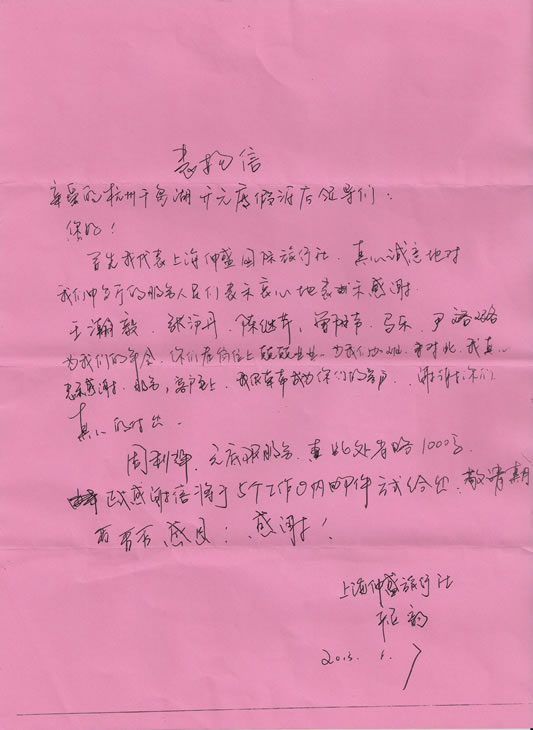 表扬信
尊敬的杭州千岛湖开元度假酒店领导们：
您好！
首先我代表上海仲盛国际旅行社，真心诚意地对
我们中餐厅的服务人员们表示衷心地表示感谢.
王瀚毅、张沪丹、陈继芹、曾树春、马乐、尹璐璐
为我们的年会，你们在岗位上兢兢业业，为我们加班，对此，我真心
感谢，服务，客户至上，我很荣幸成为你们的客户，谢谢你们
真心的付出.
周利，无底限服务，此处省略1000字.
正式感谢信将于5个工作日内邮件方式给您，敬请期
万万感恩；感谢！
上海仲盛旅行社
2013. 1. 7